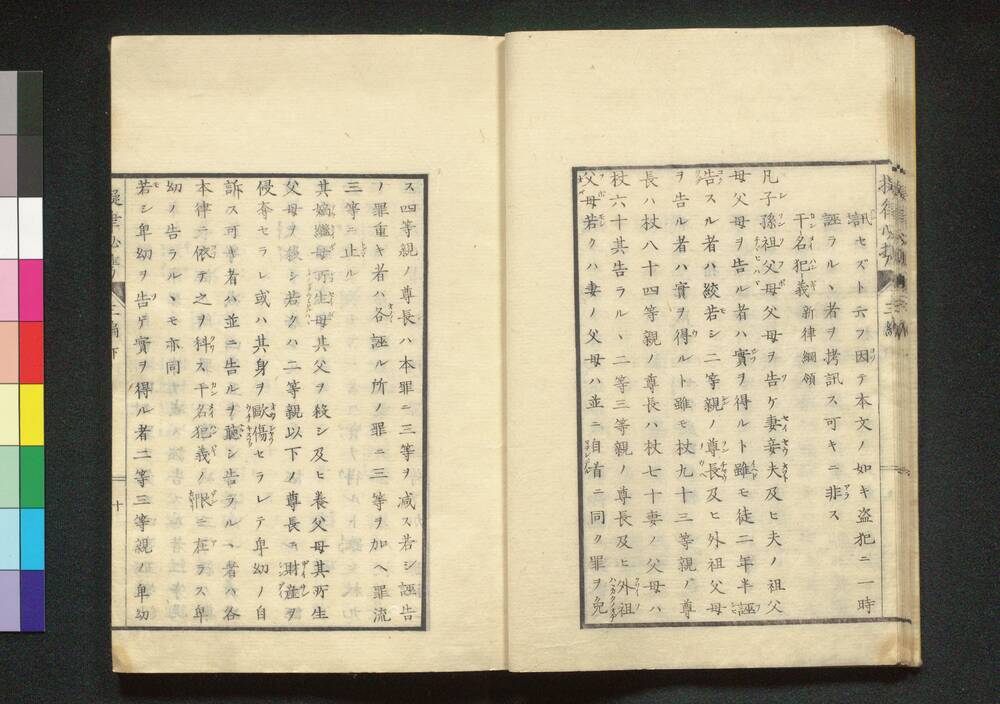 訊セズト云フ因テ本文ノ如キ盗犯ニ一時
誣ラルヽ者ヲ拷訊ス可キニ非ス
干名犯義 新律綱領
凡子孫祖父母父母ヲ告ケ妻妾夫及ヒ夫ノ祖父
母父母ヲ告ル者ハ實ヲ得ルト雖モ徒二年半誣
告スル者ハ絞若シ二等親ノ尊長及ヒ外祖父母
ヲ告ル者ハ實ヲ得ルト雖モ杖九十三等親ノ尊
長ハ杖八十四等親ノ尊長ハ杖七十妻ノ父母ハ
杖六十其告ラルヽ二等三等親ノ尊長及ヒ外祖
父母若クハ妻ノ父母ハ並ニ自首ニ同ク罪ヲ免
ス四等親ノ尊長ハ本罪ニ三等ヲ減ス若シ誣告
ノ罪重キ者ハ各誣ル所ノ罪ニ三等ヲ加ヘ罪流
三等ニ止ル
其嫡繼母所生母其父ヲ殺シ及ヒ養父母其所生
父母ヲ殺シ若クハ二等親以下ノ尊長ニ財産ヲ
侵奪セラレ或ハ其身ヲ毆傷セラレテ卑幼ノ自
訴ス可キ者ハ並ニ告ルヲ聽シ告ラルヽ者ハ各
本律ニ依テ之ヲ科ス干名犯義ノ限ニ在ラス卑
幼ノ告ラルヽモ亦同
若シ卑幼ヲ告ゲ實ヲ得ル者二等三等親ノ卑幼
十